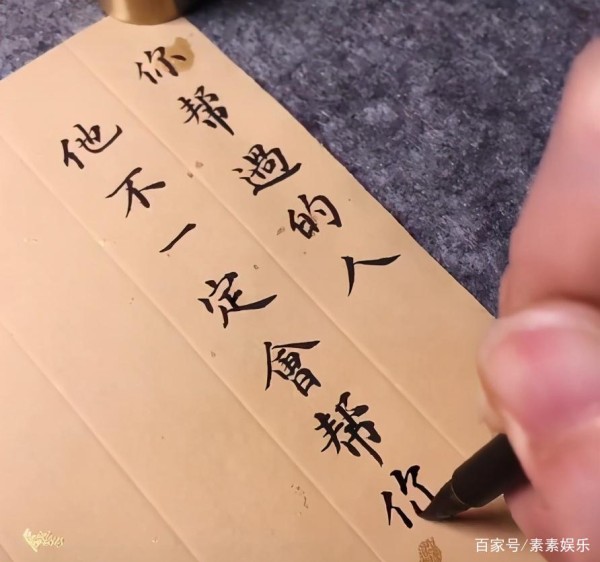 你帮過的人
他不一定會帮你
百家号/素素娱乐